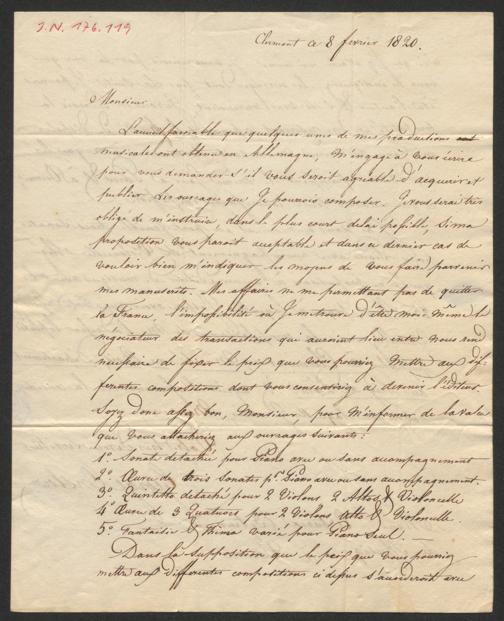 I.N. 176.119
Clermont ce 8 fevrier 1820.
Monsieur
L'acueil favorable que quelques unes de mes productions
musicales ont obtenu en Allemagne, m'engage à vous écrire
pour vous demander s'il vous seroit agréable d'acquerir et
publier les ouvrages que je pourois composer. Je vous serai très
obligé de m'instruire, dans le plus court delai possible, si ma
proposition vous paroit aceptable et dans ce dernier cas de
vouloir bien m'indiquer les moyens de vous faire parvenir
mes manuscrits. Mes affaires ne me permettant pas de quitter
la France, l'impossibilité où je me trouve d'être moi même le
négociateur des transactions qui auroient lieu entre nous rend
necessaire de fixer le prix que vous pourriez mettre aux dif-
ferentes compositions dont vous consentiriez à devenir l'éditeur.
Soyez donc assez bon, Monsieur, pour m'informer de la valeur
que vous attacheriez aux ouvrages suivants:
1° Sonate detachée pour Piano avec ou sans acompagnement
2° Œuvre de trois Sonates pr. Piano avec ou sans acompagnement.
3° Quintetto detaché pour 2 Violons 2 Altos & Violoncelle
4° Œuvre de 3 Quatuors pour 2 Violons Alto & Violoncelle.
5° Fantaisie & Thème varié pour Piano Seul.
Dans la supposition que le prix que vous pourriez
mettre aux differentes compositions ci dessus s'acorderoit avec